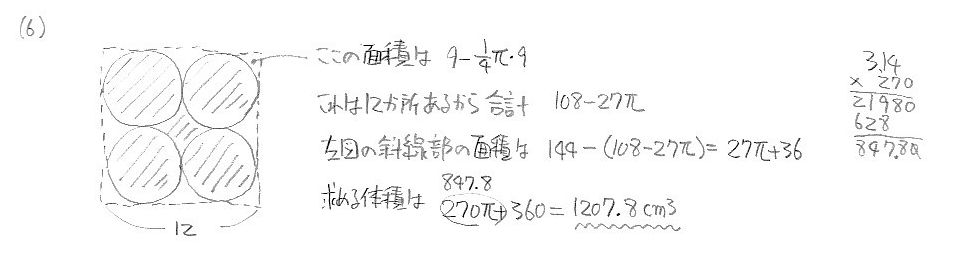 (6)
ここの面積は 9-1/4π・9
これは12か所あるから合計 108-27π
左図の斜線部の面積は 144-(108-27π)=27π+36
求める体積は 270π+360=1207.8cm3
847.8
12
3.14
×270
21980
628
847.80